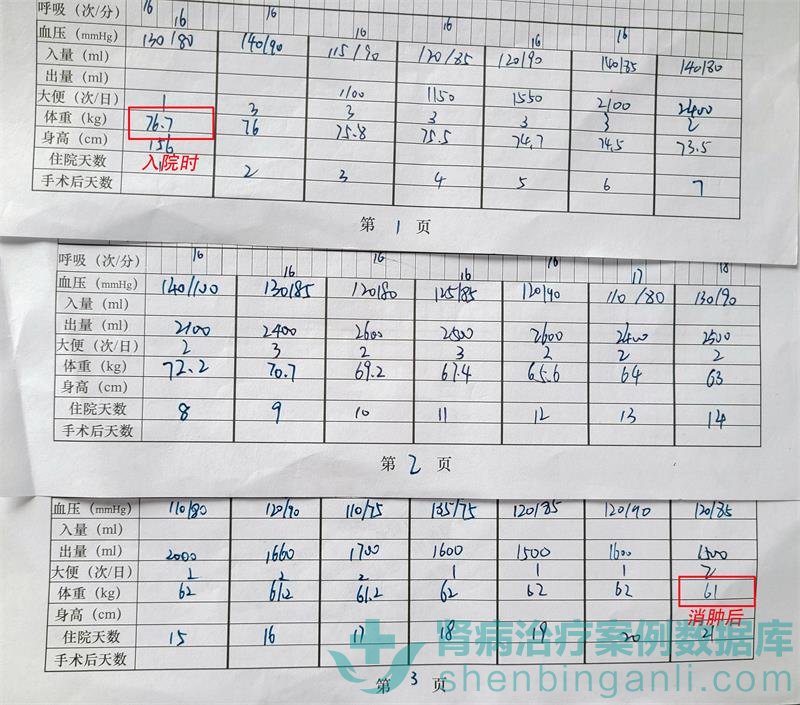 呼吸（次/分） 16 16 16 16 16 16 16
血压（mmHg） 130/80 140/90 115/90 120/85 120/90 140/85 140/80
入量（ml）
出量（ml） 1100 1150 1550 2100 2400
大便（次/日） 1 3 3 3 3 3 2
体重（kg） 76.7 76 75.8 75.5 74.7 74.5 73.5
身高（cm） 156
入院时
住院天数 1 2 3 4 5 6 7
手术后天数
第 1 页
呼吸（次/分） 16 16 16 16 16 17 18
血压（mmHg） 140/100 130/85 120/80 125/85 120/90 110/80 130/90
入量（ml）
出量（ml） 2100 2400 2600 2500 2600 2400 2500
大便（次/日） 2 3 2 3 2 2 2
体重（kg） 72.2 70.7 69.2 67.4 65.6 64 63
身高（cm）
住院天数 8 9 10 11 12 13 14
手术后天数
第 2 页
血压（mmHg） 110/80 120/90 110/75 135/75 120/85 120/90 120/85
入量（ml）
出量（ml） 2000 1660 1700 1600 1500 1600 1500
大便（次/日） 2 2 2 1 1 1 2
体重（kg） 62 61.2 61.2 62 62 62 61
身高（cm）
消肿后
住院天数 15 16 17 18 19 20 21
手术后天数
肾病治疗案例数据库
shenbinganli.com
第 3 页